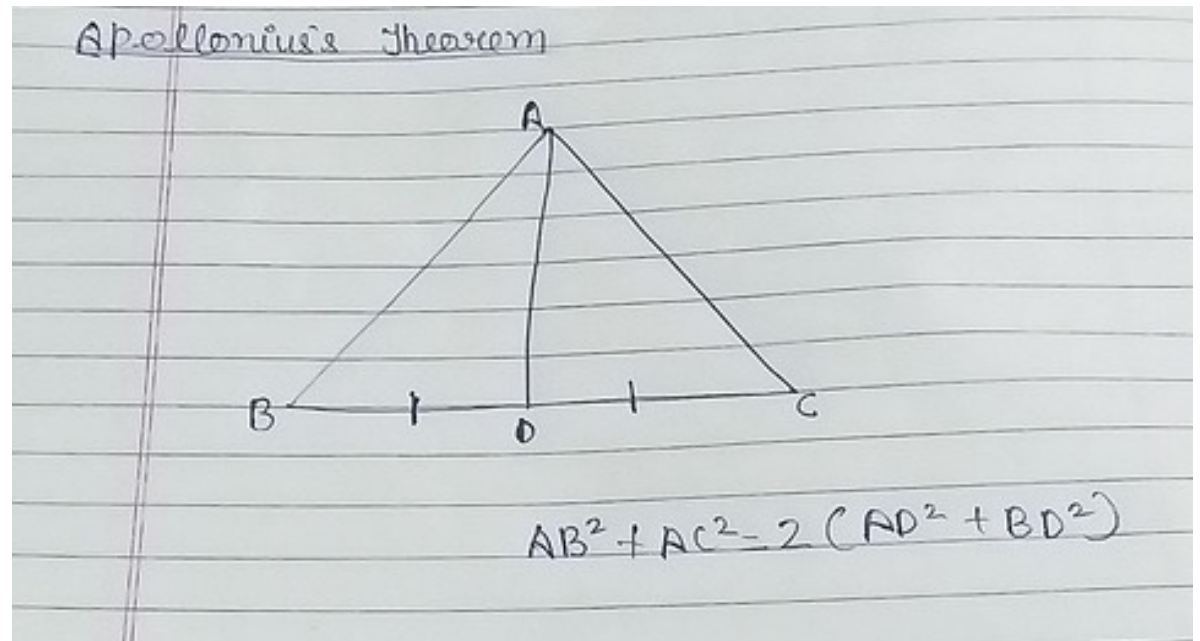 Apollonius's Thearem
A
B
D
C
AB² + AC² = 2 (AD² + BD²)